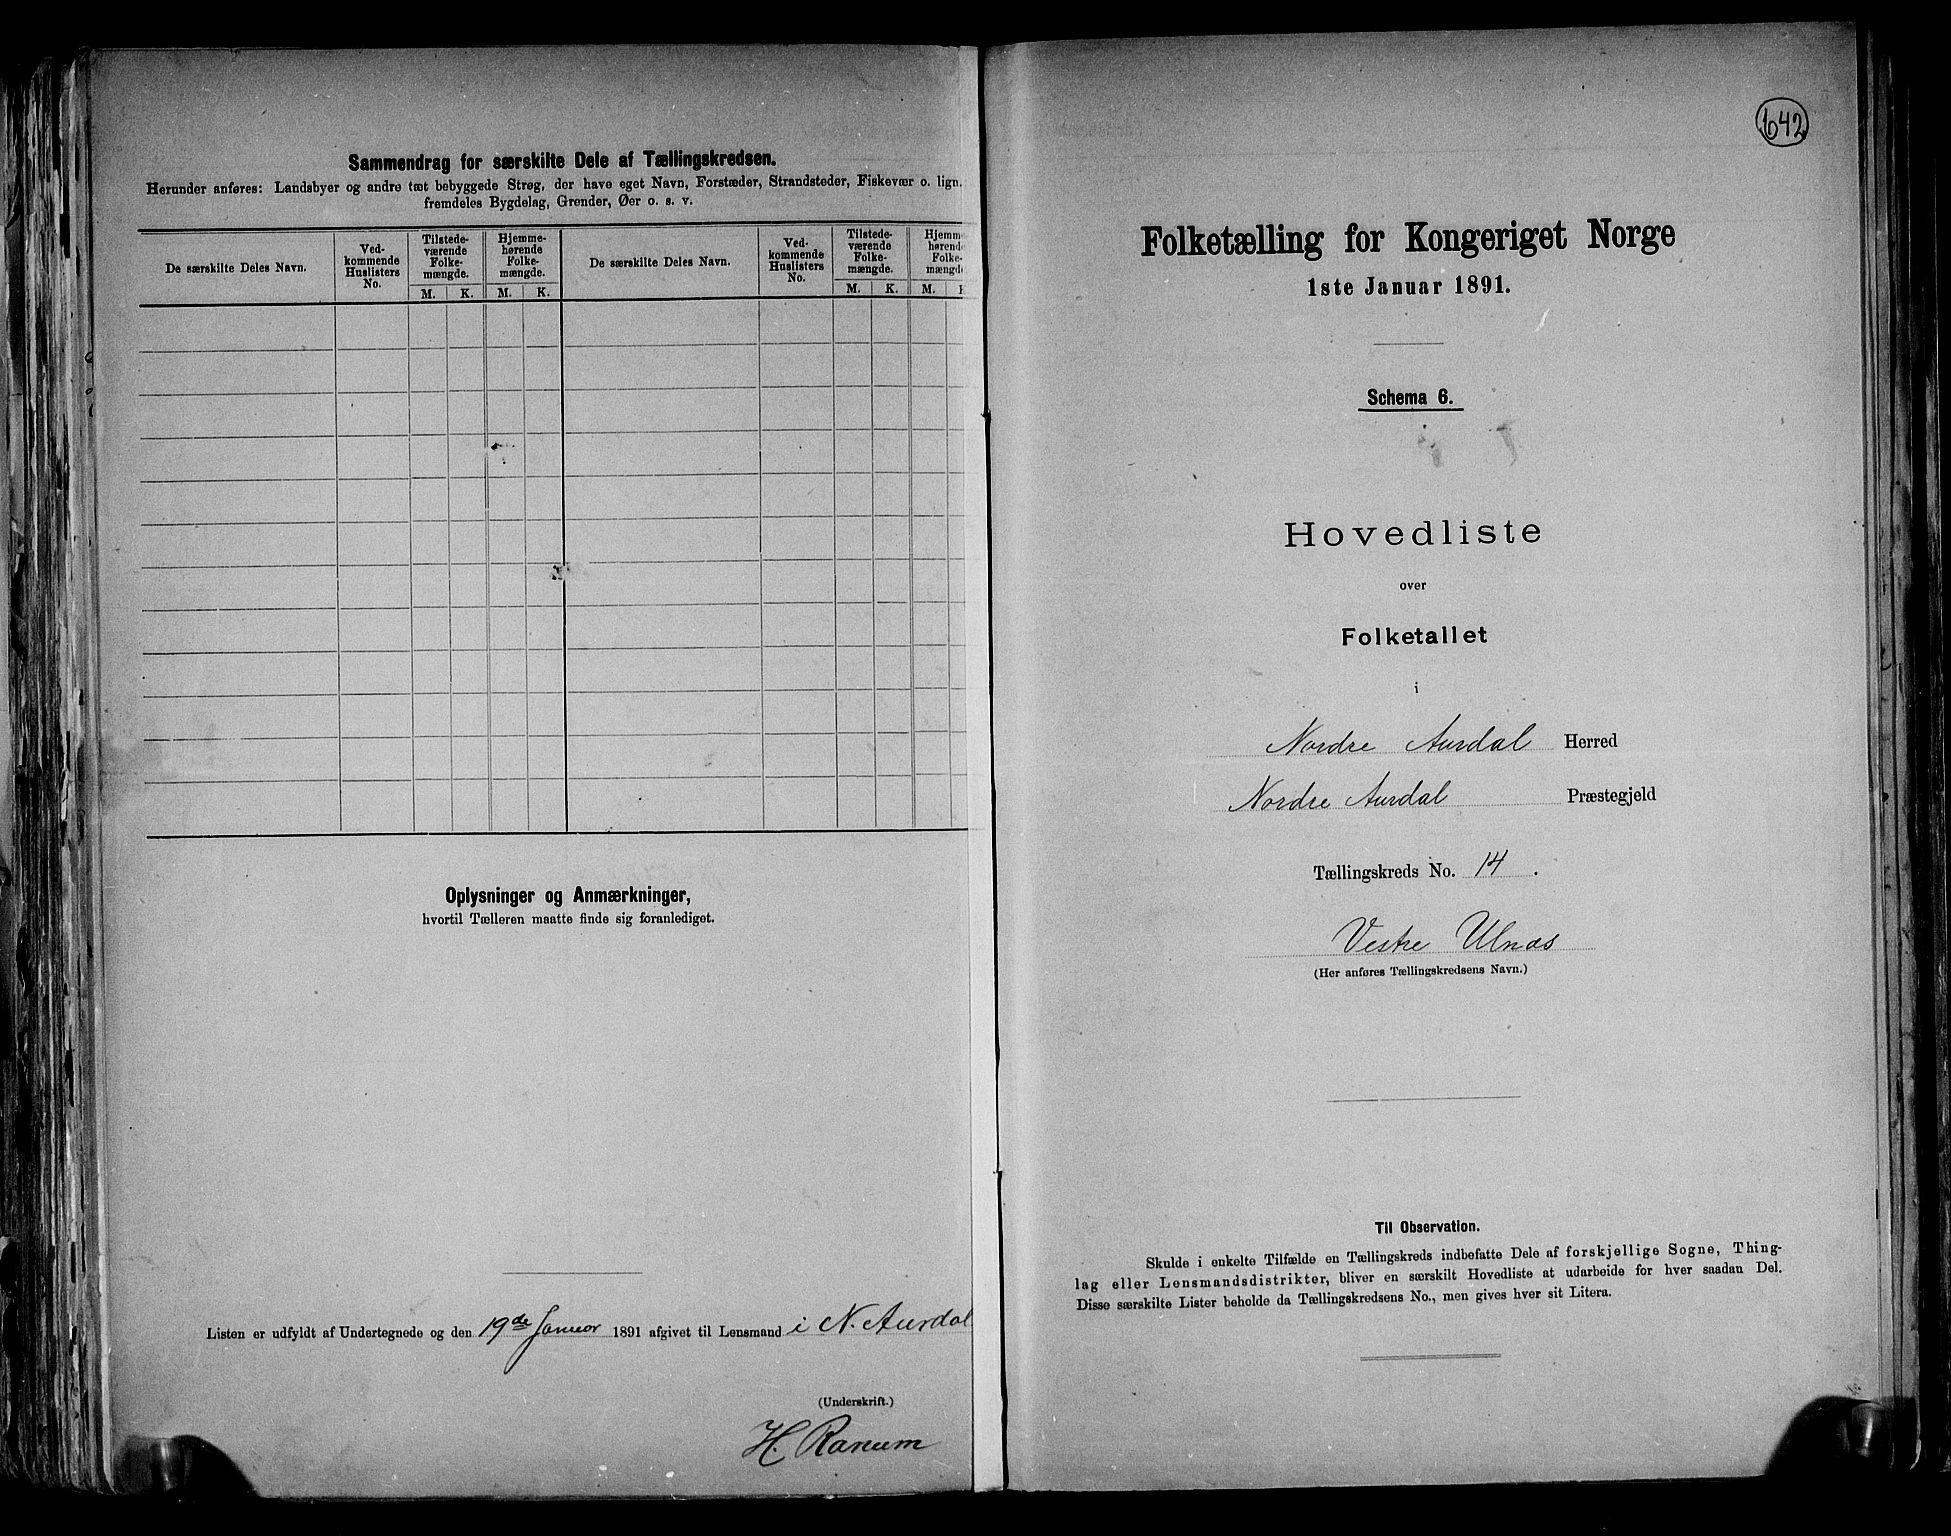 Sammendrag for særskilte Dele af Tællingskredsen.
Herunder anføres: Landsbyer og andre tæt bebyggede Strøg, der have eget Navn, Forstæder, Strandsteder, Fiskevær o. lign.
fremdeles Bygdelag, Grender, Øer o. s. v.
De særskilte Deles Navn.
Ved-
kommende
Huslisters
No.
Tilstede-
værende
Folke-
mængde.
M. K.
Hjemme-
hørende
Folke-
mængde.
M. K.
De særskilte Deles Navn.
Ved-
kommende
Huslisters
No.
Tilstede-
værende
Folke-
mængde.
M. K.
Hjemme
hørende
Folke-
mængde
M.
Oplysninger og Anmærkninger,
hvortil Tælleren maatte finde sig foranlediget.
Listen er udfyldt af Undertegnede og den 19de Januar 1891 afgivet til Lensmand i N. Aurdal
(Underskrift.)
H. Ranum
642
Folketælling for Kongeriget Norge
1ste Januar 1891.
Schema 6.
Hovedliste
over
Folketallet
i
Nordre Aurdal Herred
Nordre Aurdal Præstegjeld
Tællingskreds No. 14.
Vestre Ulnæs
(Her anføres Tællingskredsens Navn.)
Til Observation.
Skulde i enkelte Tilfælde en Tællingskreds indbefatte Dele af forskjellige Sogne, Thing-
lag eller Lensmandsdistrikter, bliver en særskilt Hovedliste at udarbeide for hver saadan Del.
Disse særskilte Lister beholde da Tællingskredsens No., men gives hver sit Litera.